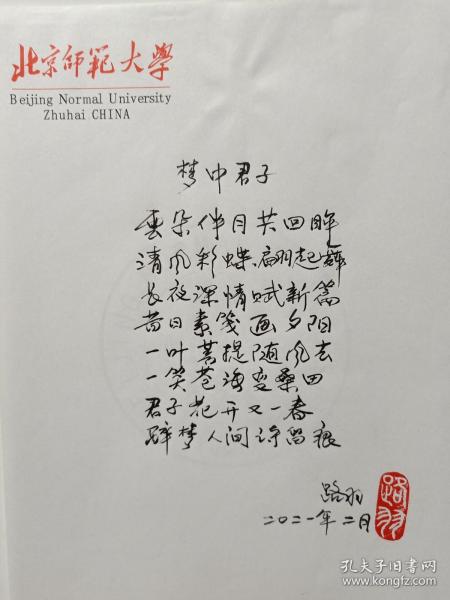 北京师范大学
Beijing Normal University
Zhuhai CHINA
梦中君子
云朵伴月共回眸
清风彩蝶翩起舞
长夜深情赋新篇
昔日素笺画夕阳
一叶菩提随风去
一笑苍海变桑田
君子花开又一春
醉梦人间诗留痕
路羽
二〇二一年二月
路羽
孔夫子旧书网
www.kongfz.com